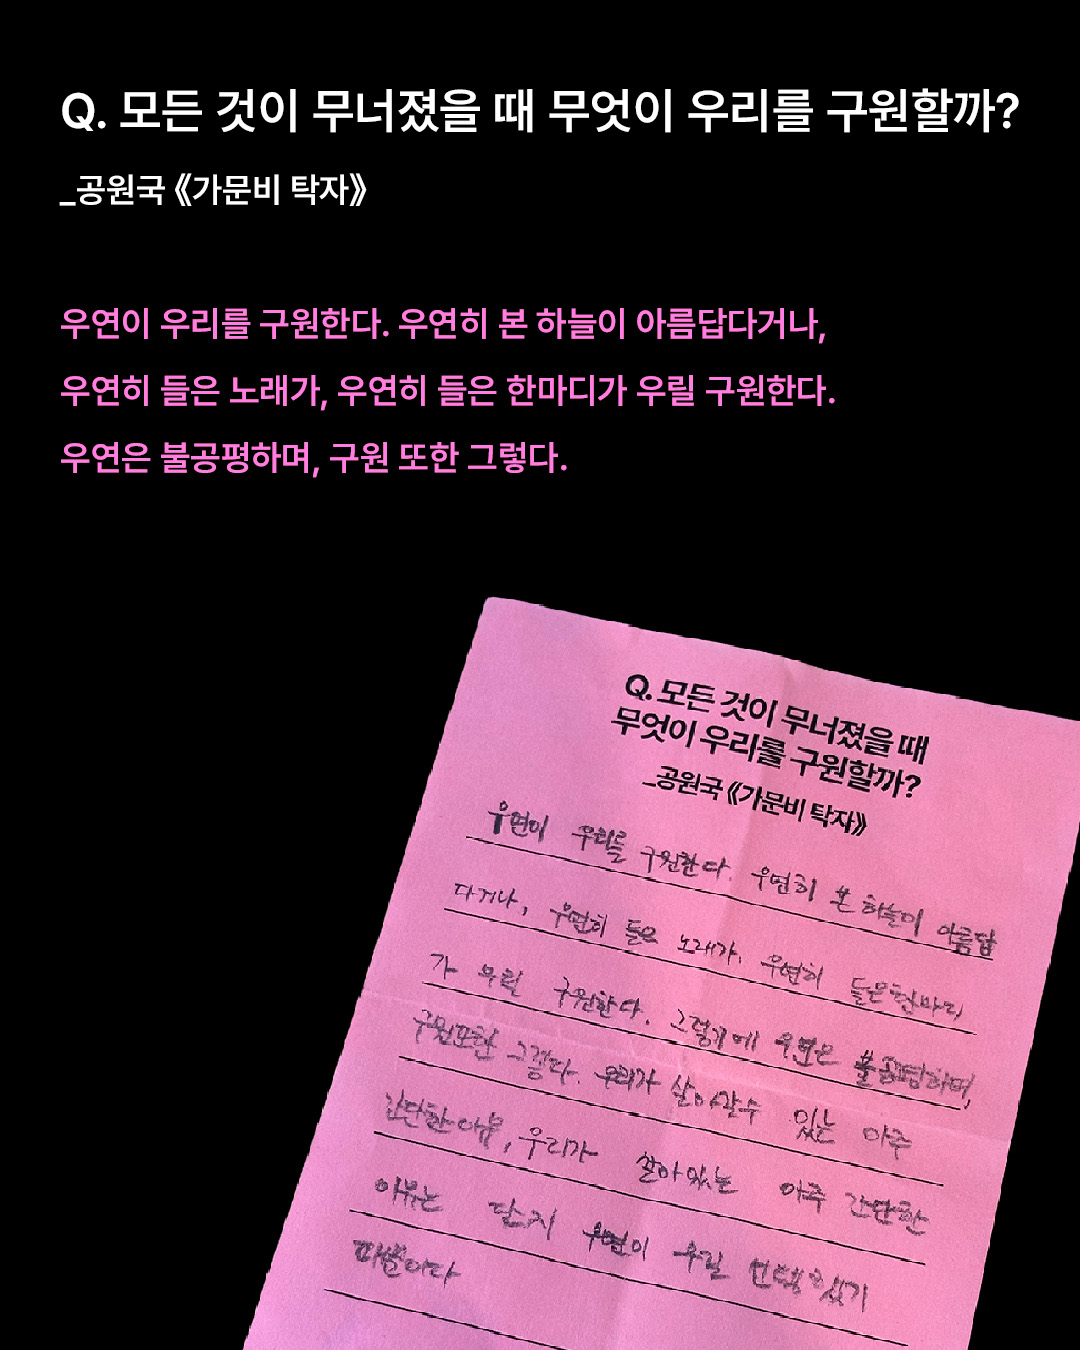 Q. 모든 것이 무너졌을 때 무엇이 우리를 구원할까?
_공원국 《가문비 탁자》
우연이 우리를 구원한다. 우연히 본 하늘이 아름답다거나,
우연히 들은 노래가, 우연히 들은 한마디가 우릴 구원한다.
우연은 불공평하며, 구원 또한 그렇다.
Q. 모든 것이 무너졌을 때
무엇이 우리를 구원할까?
_공원국 《가문비 탁자》
우연이 우리를 구원한다. 우연히 본 하늘이 아름답
다거나, 우연히 들은 노래가, 우연히 들은 한마디
가 우릴 구원한다. 그렇기에 우연은 불공평하며,
구원또한 그렇다. 우리가 살아갈수 있는 아주
간단한 이유, 우리가 살아있는 아주 간단한
이유는 단지 우연이 우릴 선택했기
때문이다